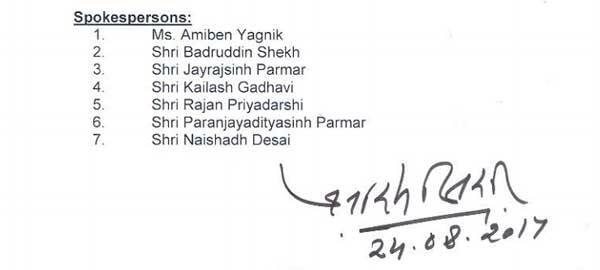 Spokespersons:
1. Ms. Amiben Yagnik
2. Shri Badruddin Shekh
3. Shri Jayrajsinh Parmar
4. Shri Kailash Gadhavi
5. Shri Rajan Priyadarshi
6. Shri Paranjayadityasinh Parmar
7. Shri Naishadh Desai
24.08.2017